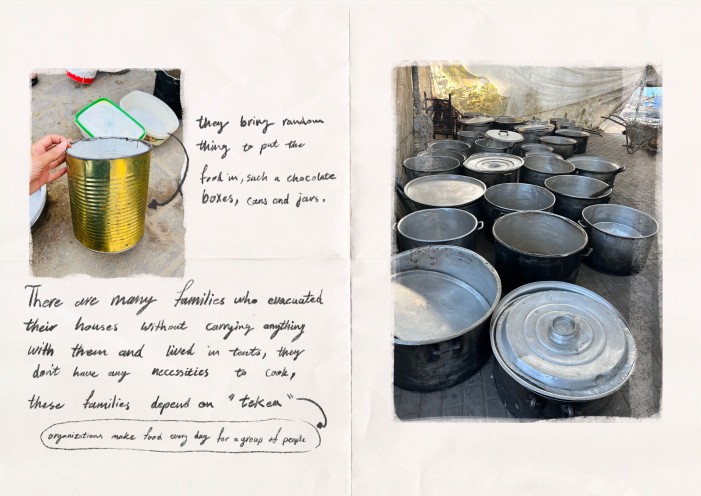 they bring random
thing to put the
food in, such a chocolate
boxes, cans and jars.
There are many families who evacuated
their houses without carrying anything
with them and lived in tents, they
don't have any necessities to cook,
these families depend on "tekea"
organizations make food every day for a group of people